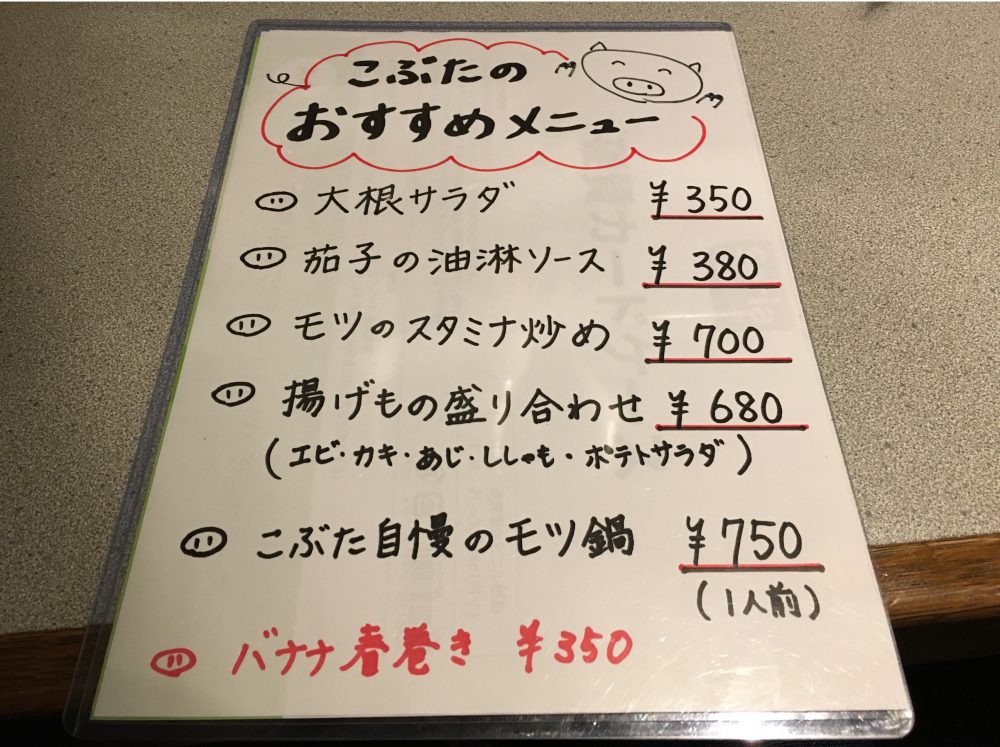 こぶたの
おすすめメニュー
大根サラダ ¥350
茄子の油淋ソース ¥380
モツのスタミナ炒め ¥700
揚げもの盛り合わせ ¥680
(エビ・カキ・あじ・ししゃも・ポテトサラダ)
こぶた自慢のモツ鍋 ¥750
(1人前)
バナナ春巻き ¥350